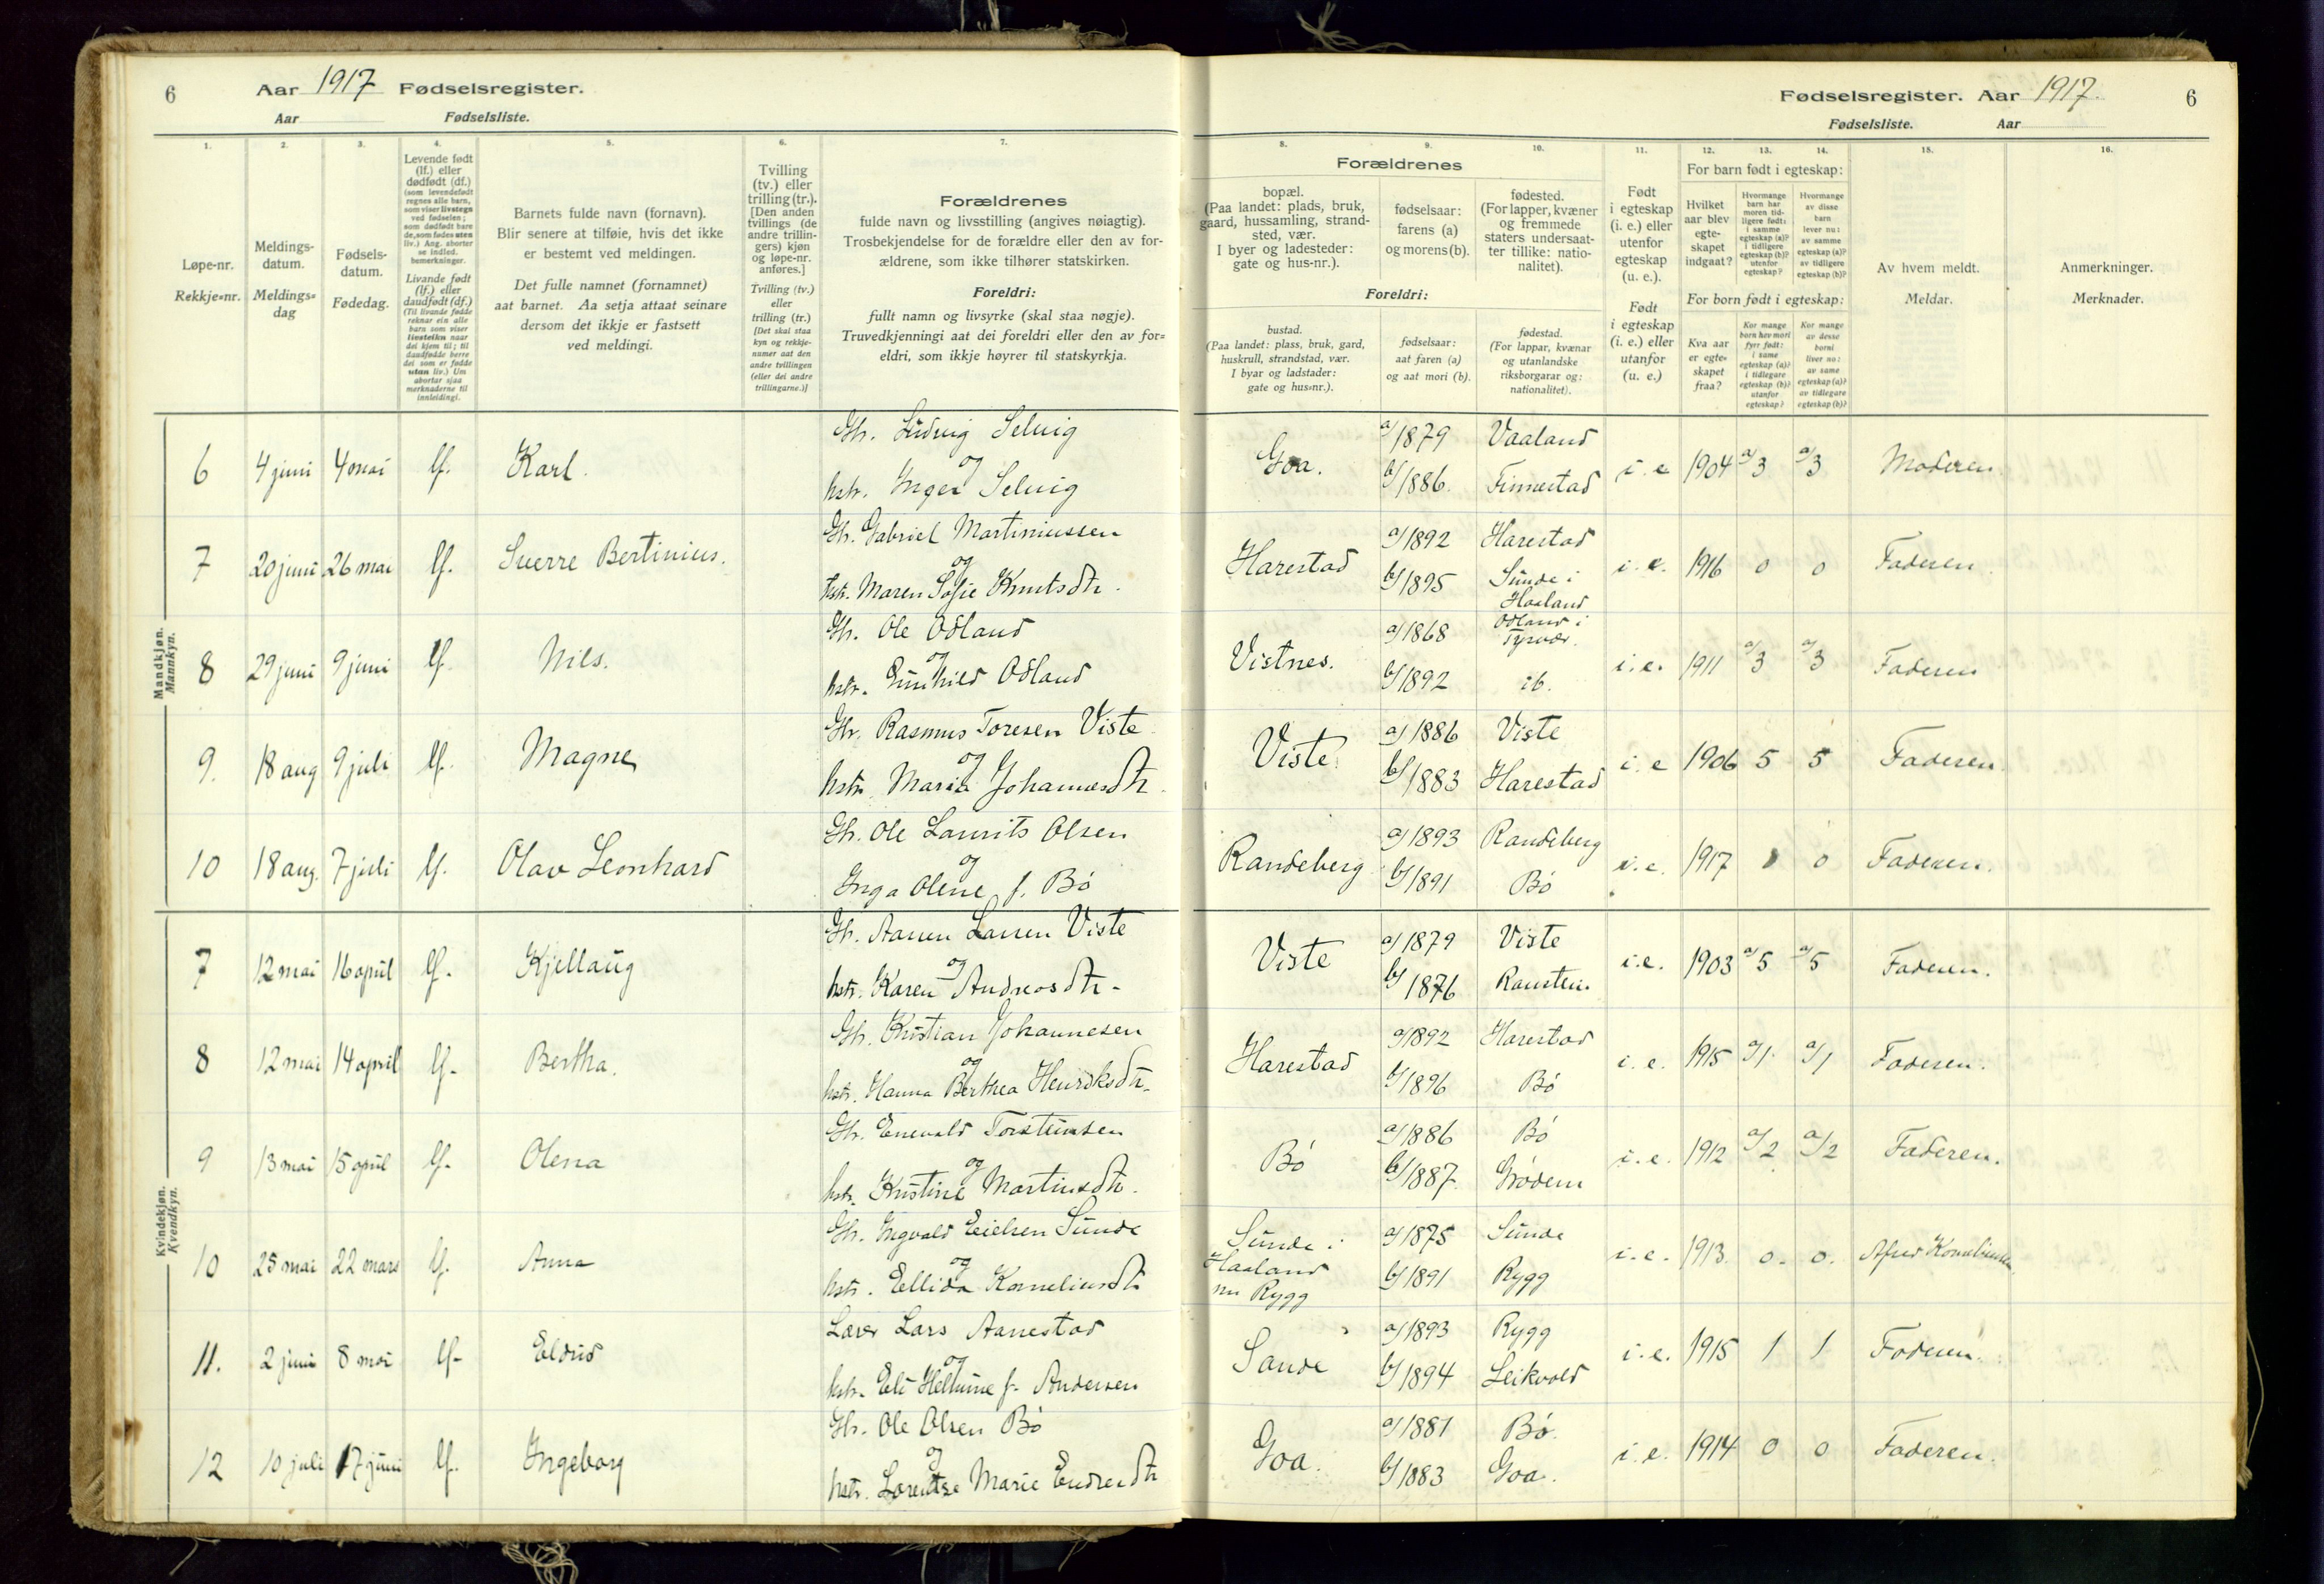 6 Aar 1917 Fødselsregister.
Aar Fødselsliste.
1. 2. 3. 4. 5. 6. 7.
Løpe-nr.
Rekkje=nr.
Meldings-
datum.
Meldings=
dag
Fødsels-
datum.
Fødedag.
Levende født
(lf.) eller
dødfødt (df.)
(som levendefødt
regnes alle barn,
som viser livstegn
ved fødselen;
som dødfødt bare
de, som fødes uten
liv.) Ang. aborter
se indled.
bemerkninger.
Livande født
(lf.) eller
daudfødt (df.)
(Til livande fødde
reknar ein alle
barn som viser
livsteikn naar
dei kjem til; til
daudfødde berre
dei som er fødde
utan liv.) Um
abortar sjaa
merknaderne til
innleidingi.
Barnets fulde navn (fornavn).
Blir senere at tilføie, hvis det ikke
er bestemt ved meldingen.
Det fulle namnet (fornamnet)
aat barnet. Aa setja attaat seinare
dersom det ikkje er fastsett
ved meldingi.
Tvilling
(tv.) eller
trilling (tr.).
[Den anden
tvillings (de
andre trillin-
gers) kjøn
og løpe-nr.
anføres.]
Tvilling (tv.)
eller
trilling (tr.)
[Det skal staa
kyn og rekkje-
numer aat den
andre tvillingen
(eller dei andre
trillingarne.)]
Forældrenes
fulde navn og livsstilling (angives nøiagtig).
Trosbekjendelse for de forældre eller den av for-
ældrene, som ikke tilhører statskirken.
Foreldri:
fullt namn og livsyrke (skal staa nøgje).
Truvedkjenningi aat dei foreldri eller den av for=
eldri, som ikkje høyrer til statskyrkja.
Mandkjøn.
Mannkyn.
6 4 juni 4 mai lf. Karl.
Gh. Ludvig Selvig
og
hstr. Inger Selvig
7 20 juni 26 mai lf. Sverre Bertinius.
Gh. Gabriel Martiniussen
og
hstr. Maren Sofie Knutsdtr.
8 29 juni 9 juni lf. Nils.
Gh. Ole Odland
og
hstr. Gunhild Odland
9. 18 aug 9 juli lf. Magne
Gh. Rasmus Toresen Viste
og
hstr. Maria Johannesdtr.
10 18 aug. 7 juli lf. Olav Leonhard
Gh. Ole Laurits Olsen
og
Inga Olene f. Bö
Kvindekjøn.
Kvendkyn.
7 12 mai 16 april lf. Kjellaug
Gh. Aanen Larsen Viste
og
hstr. Karen Andreasdtr.
8 12 mai 14 april lf. Bertha.
Gh. Kristian Johannesen
og
hstr. Hanna Berthea Henriksdtr.
9 13 mai 15 april lf. Olena
Gh. Enevald Torsteinsen
og
hstr. Kristine Martinsdtr.
10 25 mai 22 mars lf. Anna
Gh. Ingvald Eielsen Sunde
og
hstr. Ellida Korneliusdtr
11. 2 juni 8 mai lf. Eldrid
Lærer Lars Aanestad
og
hstr. Eli Helmine f. Andersen
12 10 juli 17 juni lf. Ingeborg
Gh. Ole Olsen Bö
og
hstr. Lorentse Marie Endresdtr
Fødselsregister. Aar 1917. 6
Fødselsliste. Aar
8. 9. 10. 11. 12. 13. 14. 15. 16.
Forældrenes
bopæl.
(Paa landet: plads, bruk,
gaard, hussamling, strand-
sted, vær.
I byer og ladesteder:
gate og hus-nr.).
fødselsaar:
farens (a)
og morens (b).
fødested.
(For lapper, kvæner
og fremmede
staters undersaat-
ter tillike: natio-
nalitet).
Foreldri:
bustad.
(Paa landet: plass, bruk, gard,
huskrull, strandstad, vær.
I byar og ladstader:
gate og hus=nr.).
fødselsaar:
aat faren (a)
og aat mori (b).
fødestad.
(For lappar, kvænar
og utanlandske
riksborgarar og:
nationalitet).
Født
i egteskap
(i. e.) eller
utenfor
egteskap
(u. e.).
Født
i egteskap
(i. e.) eller
utanfor
(u. e.)
For barn født i egteskap:
Hvilket
aar blev
egte-
skapet
indgaat?
Hvormange
barn har
moren tid-
ligere født:
i samme
egteskap (a)?
i tidligere
egteskap (b)?
utenfor
egteskap?
Hvormange
av disse
barn
lever nu:
av samme
egteskap (a)?
av tidligere
egteskap (b)?
For born født i egteskap:
Kva aar
er egte=
skapet
fraa?
Kor mange
born hev mori
fyrr født:
i same
egteskap (a)?
i tidlegare
egteskap (b)?
utanfor
egteskap?
Kor mange
av desse
borni
liver no:
av same
egteskap (a)?
av tidlegare
egteskap (b)?
Av hvem meldt.
Meldar.
Anmerkninger.
Merknader.
Goa. a/1879 Vaaland
b/1886. Finnestad i.e 1904 a/3 a/3 Moderen
Harestad a/1892 Harestad
b/1895 Sunde i
Haaland i.e. 1916 0 0 Faderen
Vistnes. a/1868 Odland i
Tysvær.
b/1892 ib. i.e. 1911 a/3 a/3 Faderen
Viste a/1886 Viste
b/1883 Harestad i.e 1906 5 5 Faderen
Randeberg a/1893 Randeberg
b/1891 Bö i.e. 1917 0 Faderen.
Viste a/1879 Viste
b/1876 i.e. 1903 a/5 a/5 Faderen.
Harestad a/1892 Harestad
b/1896 Bö i.e. 1915 a/1 a/1 Faderen.
Bö a/1886 Bö
b/1887. Grödem i.e. 1912 a/2 a/2 Faderen.
Sunde i
Haaland
nu Rygg a/1875 Sunde
b/1891 Rygg i.e. 1913. 0. 0.
Sande a/1893 Rygg
b/1894 Leikvold i.e. 1915 1 1 Faderen.
Goa. a/1881 Bö.
b/1883 Goa. i.e. 1914 0 0 Faderen.